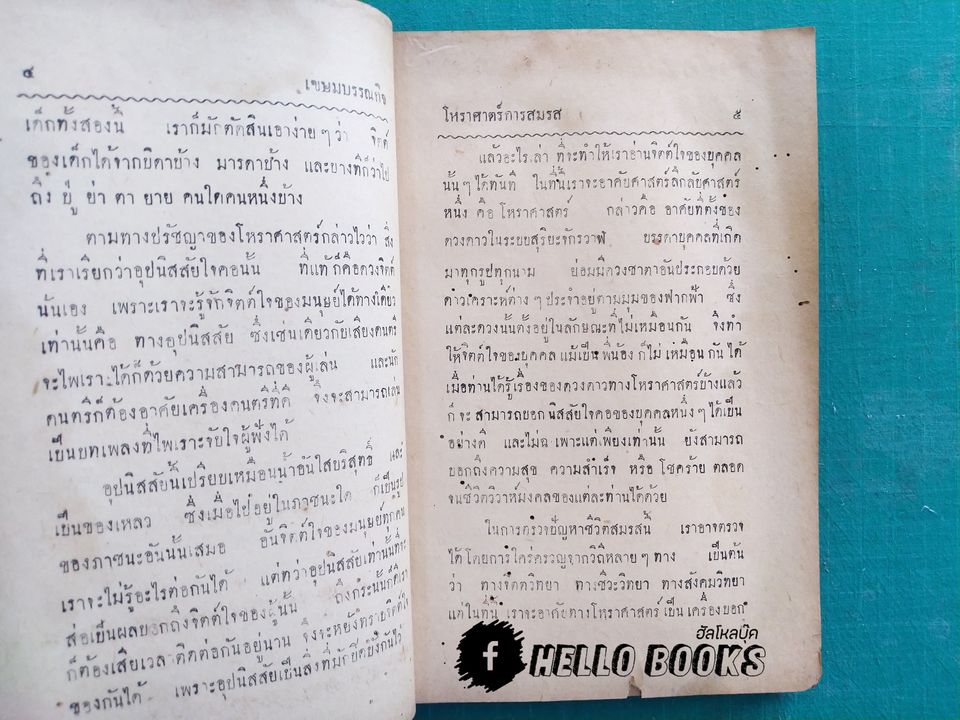 ๔
เขษมบรรณกิจ
เด็กทั้งสองนี้ เราก็มักตัดสินเอาง่าย ๆ ว่า จิตต์
ของเด็กได้จากบิดาบ้าง มารดาบ้าง และบางทีก็ว่าไป
ถึง ปู่ ย่า ตา ยาย คนใดคนหนึ่งบ้าง
ตามทางปรัชญาของโหราศาสตร์กล่าวไว้ว่า สิ่ง
ที่เราเรียกว่าอุปนิสสัยใจคอนั้น ที่แท้ก็คือดวงจิตต์
นั้นเอง เพราะเราจะรู้จักจิตต์ใจของมนุษย์ได้ทางเดียว
เท่านั้นคือ ทางอุปนิสสัย ซึ่งเช่นเดียวกับเสียงดนตรี
จะไพเราะได้ก็ด้วยความสามารถของผู้เล่น และนัก
ดนตรีก็ต้องอาศัยเครื่องดนตรีที่ดี จึงจะสามารถเล่น
เป็นบทเพลงที่ไพเราะจับใจผู้ฟังได้
อุปนิสสัยนี้เปรียบเหมือนน้ำอันใสบริสุทธิ์ และ
เป็นของเหลว ซึ่งเมื่อไปอยู่ในภาชนะใด ก็เป็นรูป
ของภาชนะอันนั้นเสมอ อันจิตต์ใจของมนุษย์ทุกคน
เราจะไม่รู้อะไรต่อกันได้ แต่ทว่าอุปนิสสัยเท่านั้นที่จะ
ส่อเป็นผลบอกถึงจิตต์ใจของผู้นั้น ถึงกระนั้นก็ดีเรา
ก็ต้องเสียเวลาติดต่อกันอยู่นาน จึงจะหยั่งทราบจิตต์ใจ
ของกันได้ เพราะอุปนิสสัยเป็นสิ่งที่มักปิดบังกันไว้
โหราศาตร์การสมรส ๕
แล้วอะไรเล่า ที่จะทำให้เราอ่านจิตต์ใจของบุคคล
นั้น ๆ ได้ทันที ในที่นี้เราจะอาศัยศาสตร์ลึกลับศาสตร์
หนึ่ง คือ โหราศาสตร์ กล่าวคือ อาศัยที่ตั้งของ
ดวงดาวในระบบสุริยะจักรวาฬ บรรดาบุคคลที่เกิด
มาทุกรูปทุกนาม ย่อมมีดวงชาตาอันประกอบด้วย
ดาวเคราะห์ต่าง ๆ ประจำอยู่ตามมุมของฟากฟ้า ซึ่ง
แต่ละดวงนั้นตั้งอยู่ในลักษณะที่ไม่เหมือนกัน จึงทำ
ให้จิตต์ใจของบุคคล แม้เป็นพี่น้อง ก็ไม่ เหมือน กัน ได้
เมื่อท่านได้รู้เรื่องของดวงดาวทางโหราศาสตร์บ้างแล้ว
ก็จะ สามารถบอก นิสสัยใจคอของบุคคลหนึ่ง ๆ ได้เป็น
อย่างดี และไม่ฉเพาะแต่เพียงเท่านั้น ยังสามารถ
บอกถึงความสุข ความสำเร็จ หรือ โชคร้าย ตลอด
จนชีวิตวิวาห์มงคลของแต่ละท่านได้ด้วย
ในการตรวจปัญหาชีวิตสมรสนี้ เราอาจตรวจ
ได้โดยการใคร่ครวญจากวิถีหลาย ๆ ทาง เป็นต้น
ว่า ทางจิตตวิทยา ทางชีวะวิทยา ทางสังคมวิทยา
แต่ในที่นี้ เราจะอาศัยทางโหราศาสตร์ เป็น เครื่องบอก
ฮัลโหลบุ๊ค
f HELLO BOOKS